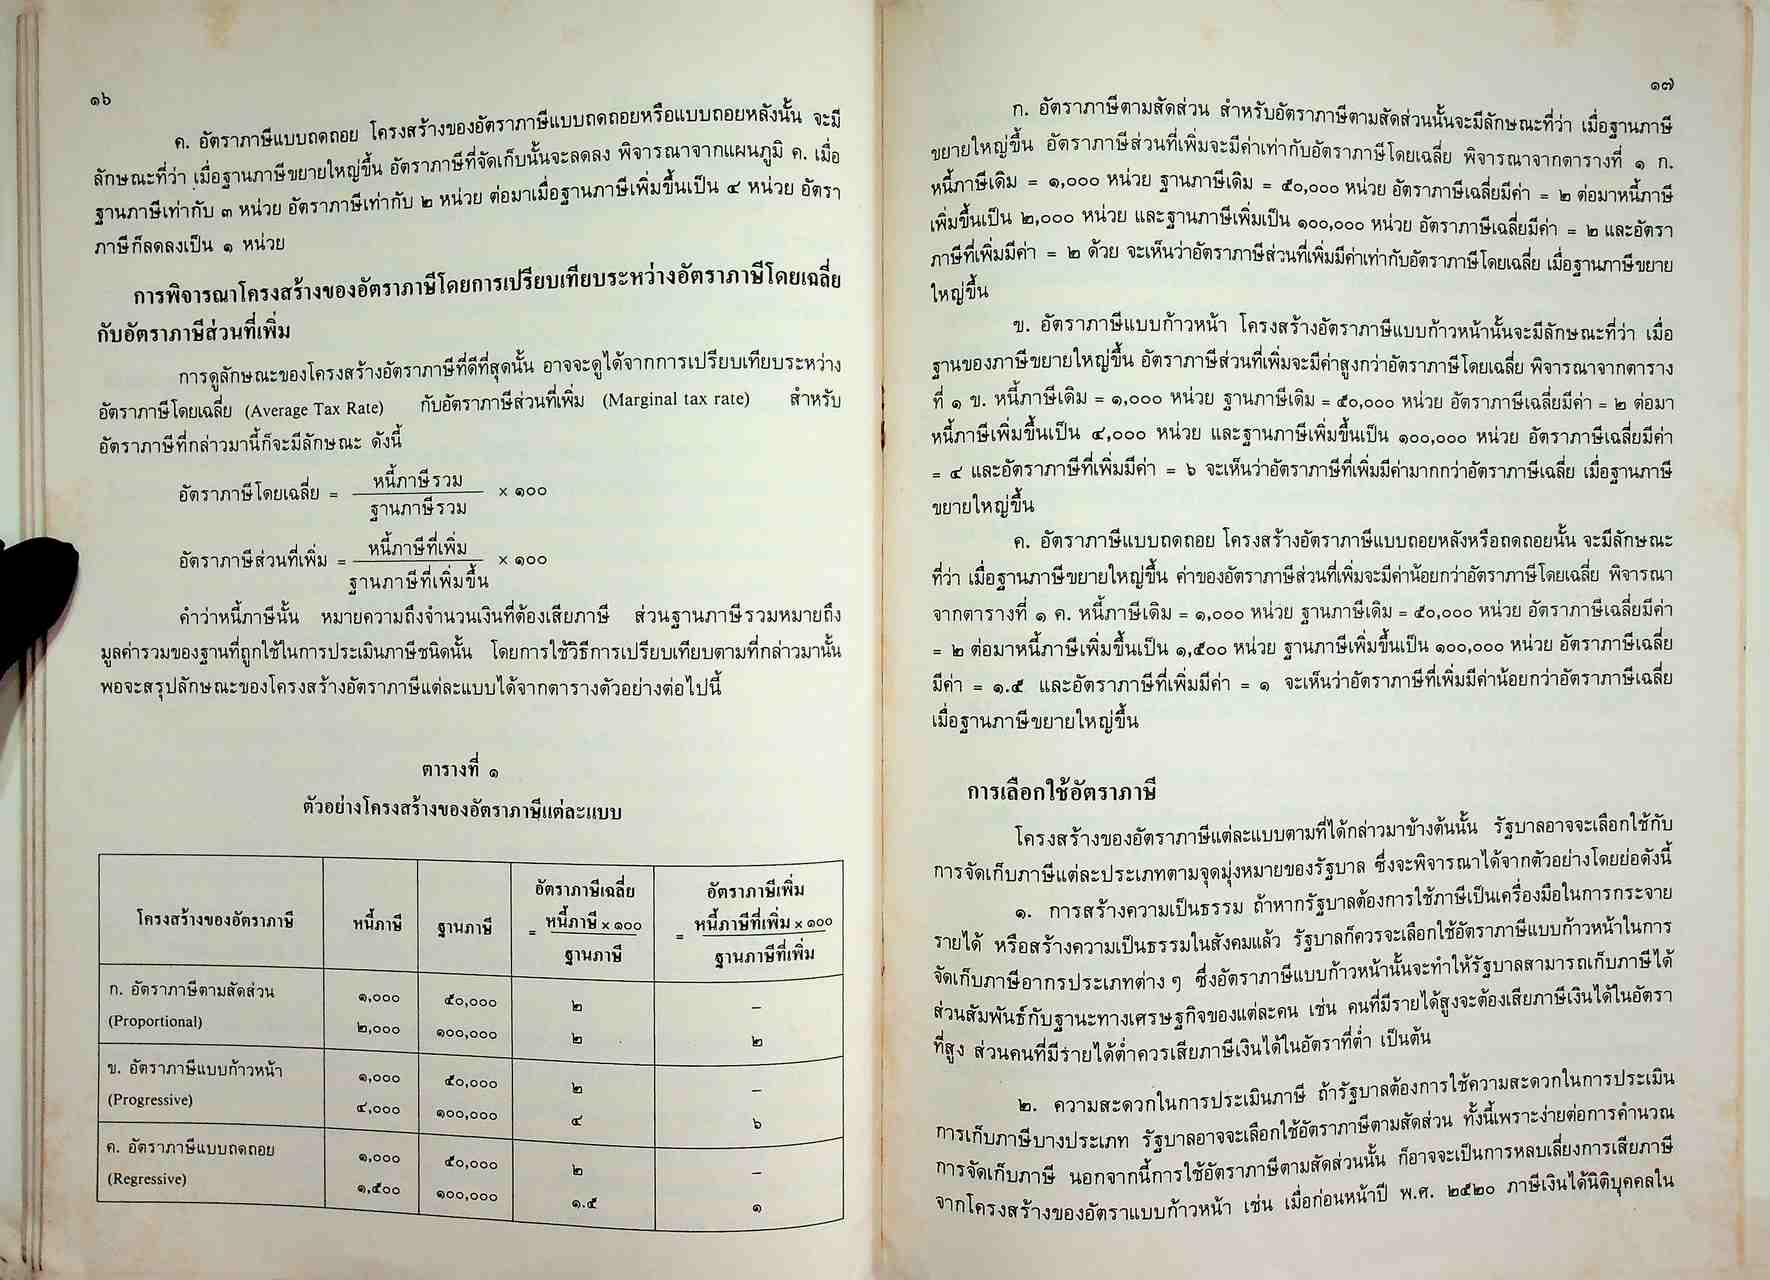 ๑๖
ค. อัตราภาษีแบบถดถอย โครงสร้างของอัตราภาษีแบบถดถอยหรือแบบถอยหลังนั้น จะมี
ลักษณะที่ว่า เมื่อฐานภาษีขยายใหญ่ขึ้น อัตราภาษีที่จัดเก็บนั้นจะลดลง พิจารณาจากแผนภูมิ ค. เมื่อ
ฐานภาษีเท่ากับ ๓ หน่วย อัตราภาษีเท่ากับ ๒ หน่วย ต่อมาเมื่อฐานภาษีเพิ่มขึ้นเป็น ๔ หน่วย อัตรา
ภาษีก็ลดลงเป็น ๑ หน่วย
การพิจารณาโครงสร้างของอัตราภาษีโดยการเปรียบเทียบระหว่างอัตราภาษีโดยเฉลี่ย
กับอัตราภาษีส่วนที่เพิ่ม
การดูลักษณะของโครงสร้างอัตราภาษีที่ดีที่สุดนั้น อาจจะดูได้จากการเปรียบเทียบระหว่าง
อัตราภาษีโดยเฉลี่ย (Average Tax Rate) กับอัตราภาษีส่วนที่เพิ่ม (Marginal tax rate) สำหรับ
อัตราภาษีที่กล่าวมานี้ก็จะมีลักษณะ ดังนี้
หนี้ภาษีรวม
อัตราภาษีโดยเฉลี่ย = × ๑๐๐
ฐานภาษีรวม
หนี้ภาษีที่เพิ่ม
อัตราภาษีส่วนที่เพิ่ม = × ๑๐๐
ฐานภาษีที่เพิ่มขึ้น
คำว่าหนี้ภาษีนั้น หมายความถึงจำนวนเงินที่ต้องเสียภาษี ส่วนฐานภาษีรวมหมายถึง
มูลค่ารวมของฐานที่ถูกใช้ในการประเมินภาษีชนิดนั้น โดยการใช้วิธีการเปรียบเทียบตามที่กล่าวมานั้น
พอจะสรุปลักษณะของโครงสร้างอัตราภาษีแต่ละแบบได้จากตารางตัวอย่างต่อไปนี้
ตารางที่ ๑
ตัวอย่างโครงสร้างของอัตราภาษีแต่ละแบบ
อัตราภาษีเฉลี่ย อัตราภาษีเพิ่ม
โครงสร้างของอัตราภาษี หนี้ภาษี ฐานภาษี = หนี้ภาษี × ๑๐๐ = หนี้ภาษีที่เพิ่ม × ๑๐๐
ฐานภาษี ฐานภาษีที่เพิ่ม
ก. อัตราภาษีตามสัดส่วน ๑,๐๐๐ ๕๐,๐๐๐ ๒ –
(Proportional) ๒,๐๐๐ ๑๐๐,๐๐๐ ๒ ๒
ข. อัตราภาษีแบบก้าวหน้า ๑,๐๐๐ ๕๐,๐๐๐ ๒ –
(Progressive) ๔,๐๐๐ ๑๐๐,๐๐๐ ๔ ๖
ค. อัตราภาษีแบบถดถอย ๑,๐๐๐ ๕๐,๐๐๐ ๒ –
(Regressive) ๑,๕๐๐ ๑๐๐,๐๐๐ ๑.๕ ๑
๑๗
ก. อัตราภาษีตามสัดส่วน สำหรับอัตราภาษีตามสัดส่วนนั้นจะมีลักษณะที่ว่า เมื่อฐานภาษี
ขยายใหญ่ขึ้น อัตราภาษีส่วนที่เพิ่มจะมีค่าเท่ากับอัตราภาษีโดยเฉลี่ย พิจารณาจากตารางที่ ๑ ก.
หนี้ภาษีเดิม = ๑,๐๐๐ หน่วย ฐานภาษีเดิม = ๕๐,๐๐๐ หน่วย อัตราภาษีเฉลี่ยมีค่า = ๒ ต่อมาหนี้ภาษี
เพิ่มขึ้นเป็น ๒,๐๐๐ หน่วย และฐานภาษีเพิ่มเป็น ๑๐๐,๐๐๐ หน่วย อัตราภาษีเฉลี่ยมีค่า = ๒ และอัตรา
ภาษีที่เพิ่มมีค่า = ๒ ด้วย จะเห็นว่าอัตราภาษีส่วนที่เพิ่มมีค่าเท่ากับอัตราภาษีโดยเฉลี่ย เมื่อฐานภาษีขยาย
ใหญ่ขึ้น
ข. อัตราภาษีแบบก้าวหน้า โครงสร้างอัตราภาษีแบบก้าวหน้านั้นจะมีลักษณะที่ว่า เมื่อ
ฐานของภาษีขยายใหญ่ขึ้น อัตราภาษีส่วนที่เพิ่มจะมีค่าสูงกว่าอัตราภาษีโดยเฉลี่ย พิจารณาจากตาราง
ที่ ๑ ข. หนี้ภาษีเดิม = ๑,๐๐๐ หน่วย ฐานภาษีเดิม = ๕๐,๐๐๐ หน่วย อัตราภาษีเฉลี่ยมีค่า = ๒ ต่อมา
หนี้ภาษีเพิ่มขึ้นเป็น ๔,๐๐๐ หน่วย และฐานภาษีเพิ่มขึ้นเป็น ๑๐๐,๐๐๐ หน่วย อัตราภาษีเฉลี่ยมีค่า
= ๔ และอัตราภาษีที่เพิ่มมีค่า = ๖ จะเห็นว่าอัตราภาษีที่เพิ่มมีค่ามากกว่าอัตราภาษีเฉลี่ย เมื่อฐานภาษี
ขยายใหญ่ขึ้น
ค. อัตราภาษีแบบถดถอย โครงสร้างอัตราภาษีแบบถอยหลังหรือถดถอยนั้น จะมีลักษณะ
ที่ว่า เมื่อฐานภาษีขยายใหญ่ขึ้น ค่าของอัตราภาษีส่วนที่เพิ่มจะมีค่าน้อยกว่าอัตราภาษีโดยเฉลี่ย พิจารณา
จากตารางที่ ๑ ค. หนี้ภาษีเดิม = ๑,๐๐๐ หน่วย ฐานภาษีเดิม = ๕๐,๐๐๐ หน่วย อัตราภาษีเฉลี่ยมีค่า
= ๒ ต่อมาหนี้ภาษีเพิ่มขึ้นเป็น ๑,๕๐๐ หน่วย ฐานภาษีเพิ่มขึ้นเป็น ๑๐๐,๐๐๐ หน่วย อัตราภาษีเฉลี่ย
มีค่า = ๑.๕ และอัตราภาษีที่เพิ่มมีค่า = ๑ จะเห็นว่าอัตราภาษีที่เพิ่มมีค่าน้อยกว่าอัตราภาษีเฉลี่ย
เมื่อฐานภาษีขยายใหญ่ขึ้น
การเลือกใช้อัตราภาษี
โครงสร้างของอัตราภาษีแต่ละแบบตามที่ได้กล่าวมาข้างต้นนั้น รัฐบาลอาจจะเลือกใช้กับ
การจัดเก็บภาษีแต่ละประเภทตามจุดมุ่งหมายของรัฐบาล ซึ่งจะพิจารณาได้จากตัวอย่างโดยย่อดังนี้
๑. การสร้างความเป็นธรรม ถ้าหากรัฐบาลต้องการใช้ภาษีเป็นเครื่องมือในการกระจาย
รายได้ หรือสร้างความเป็นธรรมในสังคมแล้ว รัฐบาลก็ควรจะเลือกใช้อัตราภาษีแบบก้าวหน้าในการ
จัดเก็บภาษีอากรประเภทต่าง ๆ ซึ่งอัตราภาษีแบบก้าวหน้านั้นจะทำให้รัฐบาลสามารถเก็บภาษีได้
ส่วนสัมพันธ์กับฐานะทางเศรษฐกิจของแต่ละคน เช่น คนที่มีรายได้สูงจะต้องเสียภาษีเงินได้ในอัตรา
ที่สูง ส่วนคนที่มีรายได้ต่ำควรเสียภาษีเงินได้ในอัตราที่ต่ำ เป็นต้น
๒. ความสะดวกในการประเมินภาษี ถ้ารัฐบาลต้องการใช้ความสะดวกในการประเมิน
การเก็บภาษีบางประเภท รัฐบาลอาจจะเลือกใช้อัตราภาษีตามสัดส่วน ทั้งนี้เพราะง่ายต่อการคำนวณ
การจัดเก็บภาษี นอกจากนี้การใช้อัตราภาษีตามสัดส่วนนั้น ก็อาจจะเป็นการหลบเลี่ยงการเสียภาษี
จากโครงสร้างของอัตราแบบก้าวหน้า เช่น เมื่อก่อนหน้าปี พ.ศ. ๒๕๒๐ ภาษีเงินได้นิติบุคคลใน